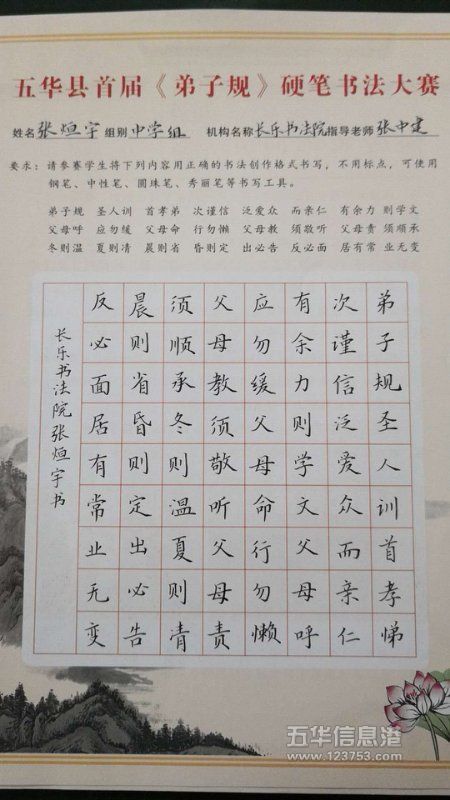 五华县首届《弟子规》硬笔书法大赛
姓名 张烜宇 组别 中学组 机构名称 长乐书法院 指导老师 张中建
要求：请参赛学生将下列内容用正确的书法创作格式书写，不用标点，可使用
钢笔、中性笔、圆珠笔、秀丽笔等书写工具。
弟子规 圣人训 首孝弟 次谨信 泛爱众 而亲仁 有余力 则学文
父母呼 应勿缓 父母命 行勿懒 父母教 须敬听 父母责 须顺承
冬则温 夏则清 晨则省 昏则定 出必告 反必面 居有常 业无变
弟子规圣人训首孝悌
次谨信泛爱众而亲仁
有余力则学文父母呼
应勿缓父母命行勿懒
父母教须敬听父母责
须顺承冬则温夏则清
晨则省昏则定出必告
反必面居有常业无变
长乐书法院张烜宇书
五华信息港
www.123753.com